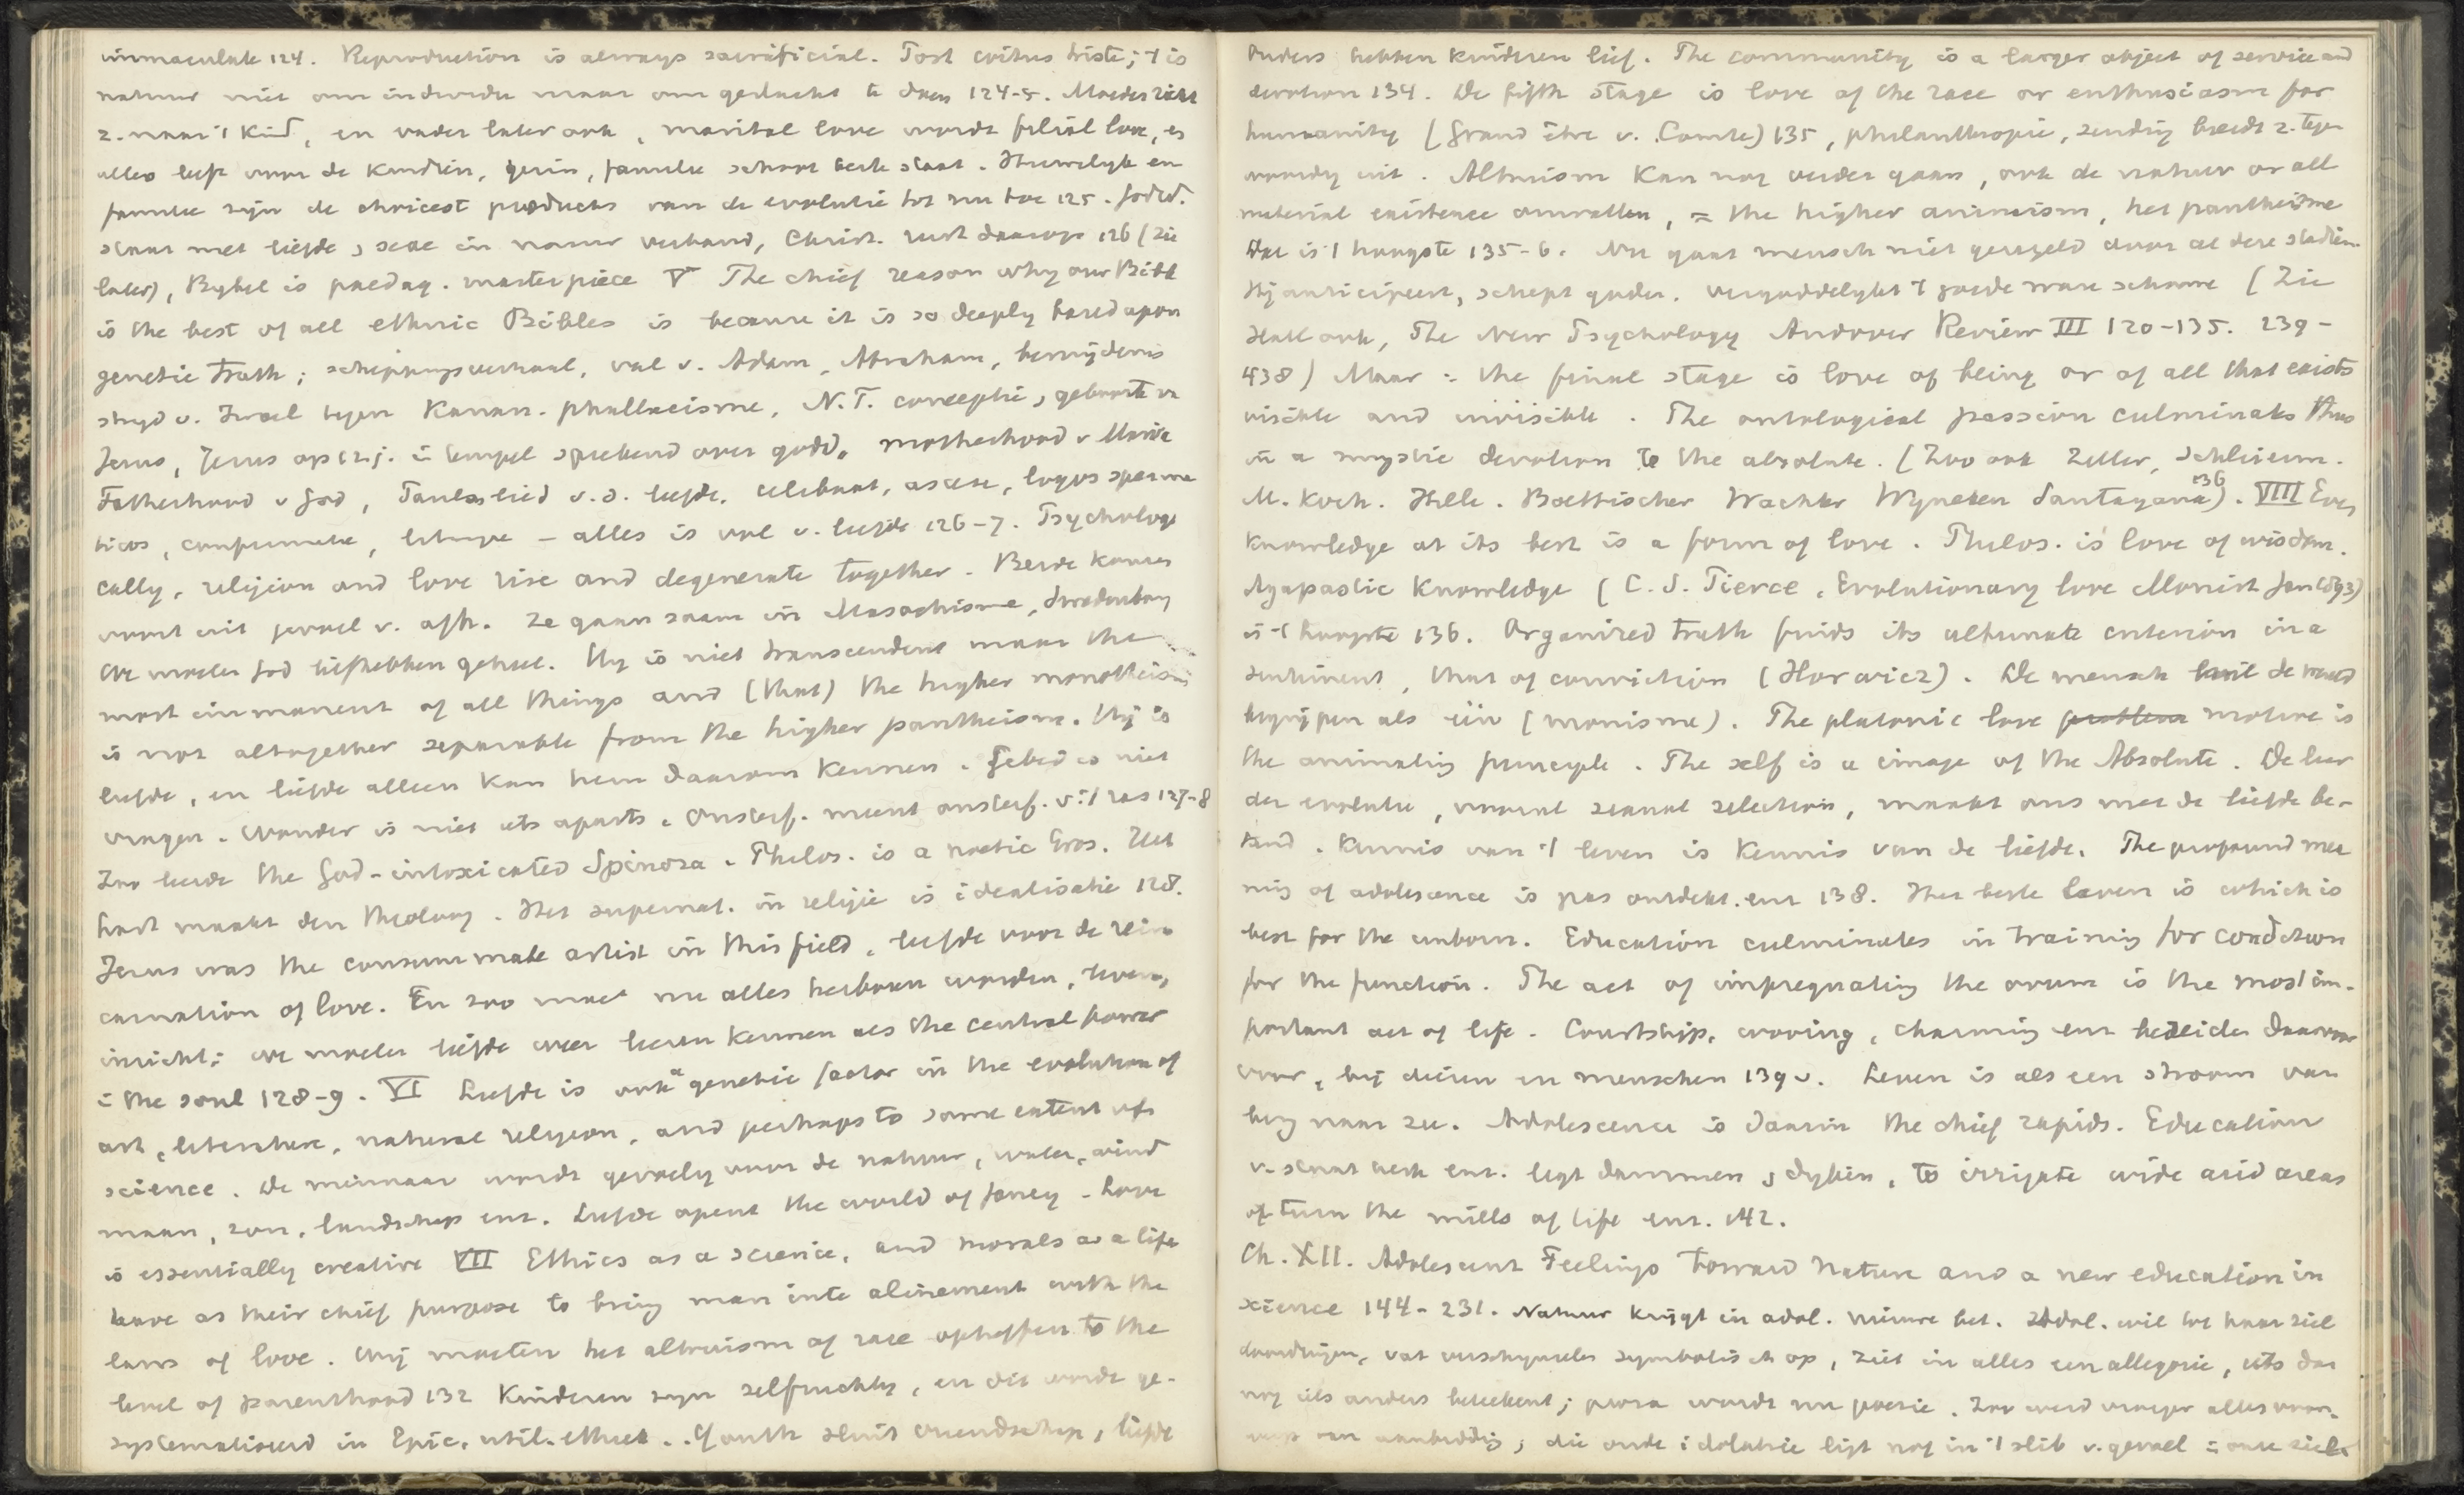 immaculate 124. Reproduction is always sacrificial. Post coitus triste; 't is
natuur niet om individu maar om geslacht te doen 124-5. Moeder richt
z. naar 't kind, en vader later ook, marital love wordt filial love, es
alles leeft voor de kindren, gezin, familie school kerk staat. Huwelyk en
familie zyn de choicest products van de evolutie tot nu toe 125. Godsd.
staat met liefde, sexe in nauw verband, Christ. rust daarop 126 (zie
later), Bybel is paedag. masterpiece V The chief reason why our Bible
is the best of all ethnic Bibles is because it is so deeply based upon
genetic truth; scheppingsverhaal, val v. Adam, Abraham, besnydenis
stryd v. Israel tegen Kanan. phallicisme, N.T. conceptie, geboorte v.
Jezus, Jezus op 12 j. in tempel sprekend over godd. motherhood v Maria
Fatherhood v God, Paulus lied v. d. liefde, celibaat, ascese, logos sperma
ticos, confirmatie, liturgie - alles is vol v. liefde 126-7. Psychologi
cally, religion and love rise and degenerate together. Beide komen
voort uit gevoel v. afh. Ze gaan saam in Masochisme, Swedenborg
We moeten God liefhebben geheel. Hy is niet transcendent maar the
most immanent of all things and (that) the higher monotheism
is not altogether separable from the higher pantheism. Hij is
liefde, en liefde alleen kan hem daarom kennen. Gebed is niet
vragen. Wonder is niet iets aparts. Onsterf. meent onsterf. v. 't ras 127-8
Zoo leerde the God-intoxicated Spinoza. Philos. is a noetic Eros. Het
hart maakt den theoloog. Het supernat. in religie is idealisatie 128.
Jesus was the consummate artist in this field, liefde voor de rein
carnation of love. En zoo moet nu alles herboren worden, leven,
inricht: we moeten liefde weer leeren kennen als the central power
in the soul 128-9. VI Liefde is ook a genetic factor in the evolution of
art, literature, natural religion, and perhaps to some extent of
science. De minnaar wordt gevoelig voor de natuur, water, wind
maan, zon, landschap enz. Liefde opent the world of fancy - Love
is essentially creative VII Ethics as a science, and morals as a life
have as their chief purpose to bring man into alinement with the
laws of love. Wij moeten het altruism of race opheffen to the
level of parenthood 132 Kinderen zyn zelfzuchtig, en dit wordt ge-
systematiseerd in Epic. util. ethiek. Youth sluit vriendschap, liefde
Ouders hebben kinderen lief. The community is a larger object of service and
devotion 134. De fifth stage is love of the race or enthusiasm for
humanity (Grand être v. Comte) 135, philanthropie, zending breidt z. tegen
woordig uit. Altruism kan nog verder gaan, ook de natuur or all
material existence omvatten, = the higher animism, het pantheisme
Dat is 't hoogste 135-6. Nu gaat mensch niet geregeld door al deze stadien.
Hij anticipeert, schept goden. vergoddelykt 't goede ware schoone (Zie
Hall ook, The New Psychology Andover Review III 120-135. 239-
438) Maar: the final stage is love of being or of all that exists
visible and invisible. The ontological passion culminates thus
in a mystic devotion to the absolute. (Zoo ook Zeller, Schleierm.
M. Koch. Hille. Boetticher Wachter Wyneken Santayana) 136. VIII Even
knowledge at its best is a form of love. Philos. is love of wisdom.
Agapastic knowledge (C. S. Pierce, Evolutionary love Monist Jan 1893)
is 't hoogste 136. Organized truth finds its ultimate criterion in a
sentiment, that of conviction (Horwicz). De mensch wil de wereld
begrijpen als één (monisme). The platonic love problem motive is
the animating principle. The self is a image of the Absolute. De leer
der evolutie, vooral sexual selection, maakt ons met de liefde be-
kend. Kennis van 't leven is kennis van de liefde. The profound mea
ning of adolescence is pas ontdekt. enz 138. Het beste leven is which is
best for the unborn. Education culminates in training for condition
for the function. The act of impregnating the ovum is the most im-
portant act of life. Courtship, wooing, charming enz bereiden daarvoor
voor, bij dieren en menschen 139 v. Leven is als een stroom van
berg naar zee. Adolescence is daarin the chief rapids. Education
v. staat kerk enz. legt dammen, dyken, to irrigate wide arid areas
of turn the mills of life enz. 142.
Ch. XII. Adolescent Feelings Toward Nature and a new education in
science 144-231. Natuur krijgt in adol. nieuwe bet. Adol. wil tot haar ziel
doordringen, vat verschynselen symbolisch op, ziet in alles een allegorie, iets dat
nog iets anders beteekent; proza wordt nu poezie. Zoo werd vroeger alles voor-
werp van aanbidding; die oude idolatrie ligt nog in 't slib v. gevoel in onze ziel